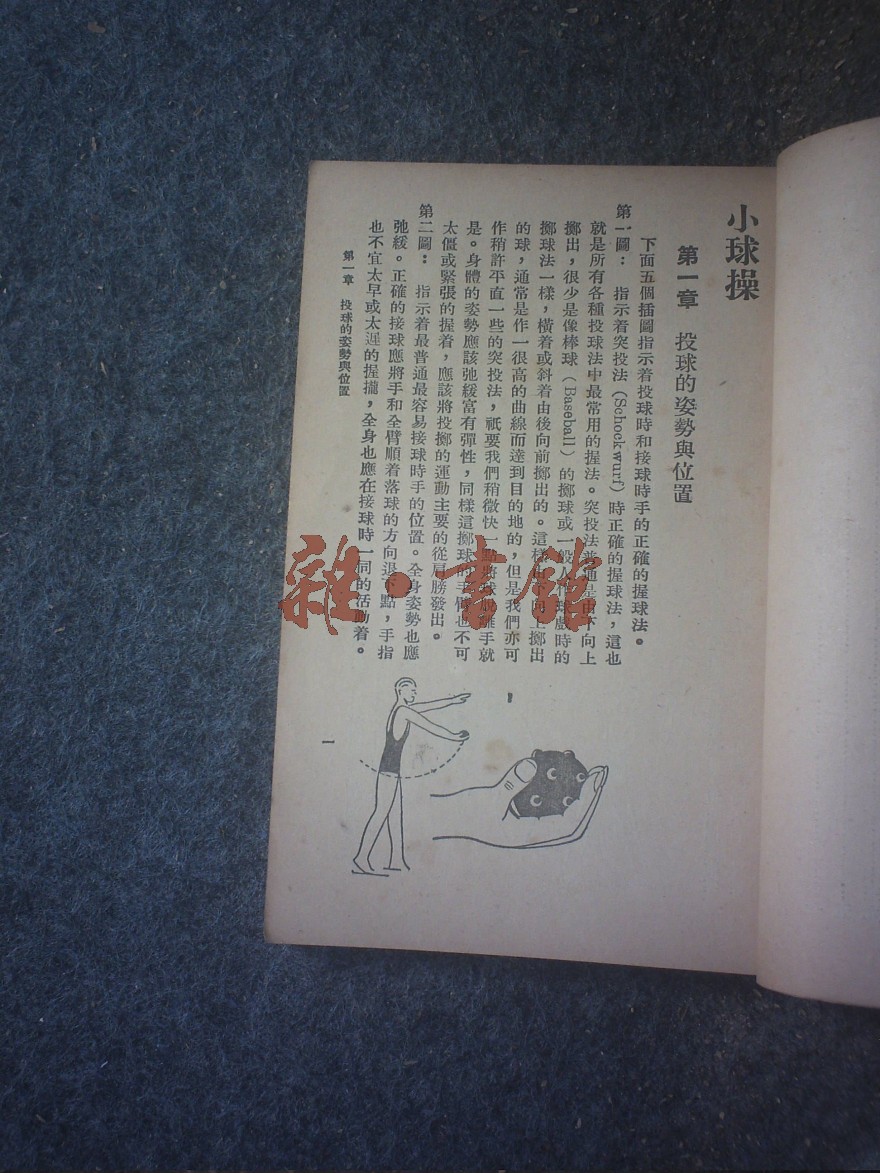 小球操
第一章 投球的姿勢與位置
下面五個插圖指示着投球時和接球時手的正確的握球法。
第一圖： 指示着突投法（Schockwurf）時正確的握球法，這也
就是所有各種投球法中最常用的握法。突投法普通是由下向上
擲出，很少是像棒球（Baseball）的擲球或一般球戲時的
擲球法一樣，橫着或斜着由後向前擲出的。這樣由向上擲出
的球，通常是作一很高的曲線而達到目的地的，但是我們亦可
作稍許平直一些的突投法，祇要我們稍微快一點將球離手就
是。身體的姿勢應該弛緩富有彈性，同樣這擲球的手臂也不可
太僵或緊張的握着，應該將投擲的運動主要的從肩膀發出。
第二圖： 指示着最普通最容易接球時手的位置。全身姿勢也應
弛緩。正確的接球應將手和全臂順着落球的方向退點，手指
也不宜太早或太遲的握攏，全身也應在接球時一同的活動着。
第一章 投球的姿勢與位置
一
雜·書館